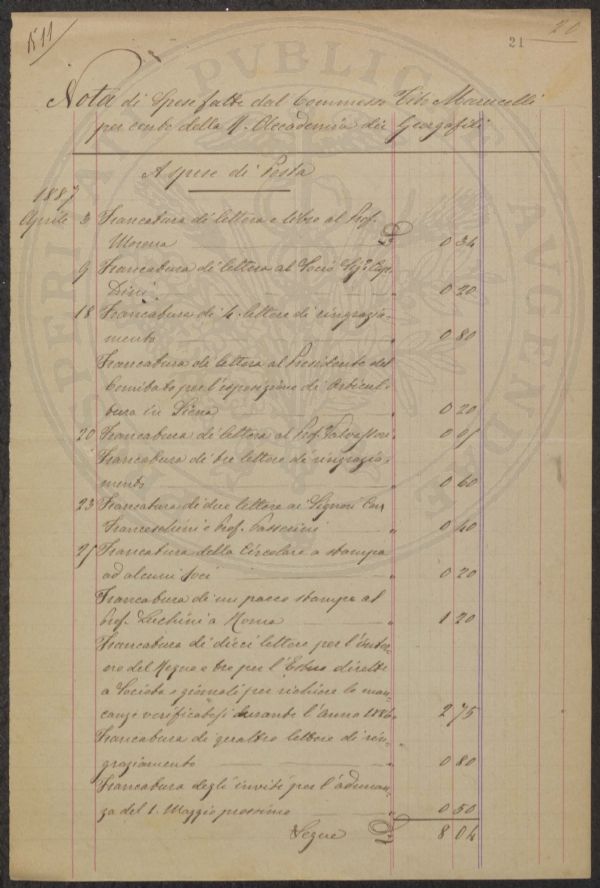 K11
20
21
Nota di Spese fatte dal Commesso Vito Marucelli
per conto della R. Accademia dei Georgofili
A spese di Posta
1887
Aprile 3 Francatura di lettera e libro al Prof.
Morena £ 0 34
9 Francatura di lettera al Socio Sigr. Cap.
Dini " 0 20
18 Francatura di 4. lettere di ringrazia-
mento " 0 80
Francatura di lettera al Presidente del
Comitato per l'esposizione di Orticul-
tura in Siena " 0 20
20 Francatura di lettera al Prof. Valvassori " 0 05
Francatura di tre lettere di ringrazia-
mento " 0 60
23 Francatura di due lettere ai Signori Cav.
Franceschini e Prof. Passerini " 0 40
25 Francatura della Circolare a stampa
ad alcuni soci " 0 20
Francatura di un pacco stampe al
Prof. Luchini a Roma " 1 20
Francatura di dieci lettere per l'inter-
no del Regno e tre per l'Estero dirette
a Società e giornali per richiesta le man-
canze verificatesi durante l'anno 1886 " 2 75
Francatura di quattro lettere di rin-
graziamento " 0 80
Francatura degli inviti per l'adunan-
za del 1. Maggio prossimo " 0 50
Segue £ 8 04
PVBLICAE
AVGENDAE
PROSPERITATI